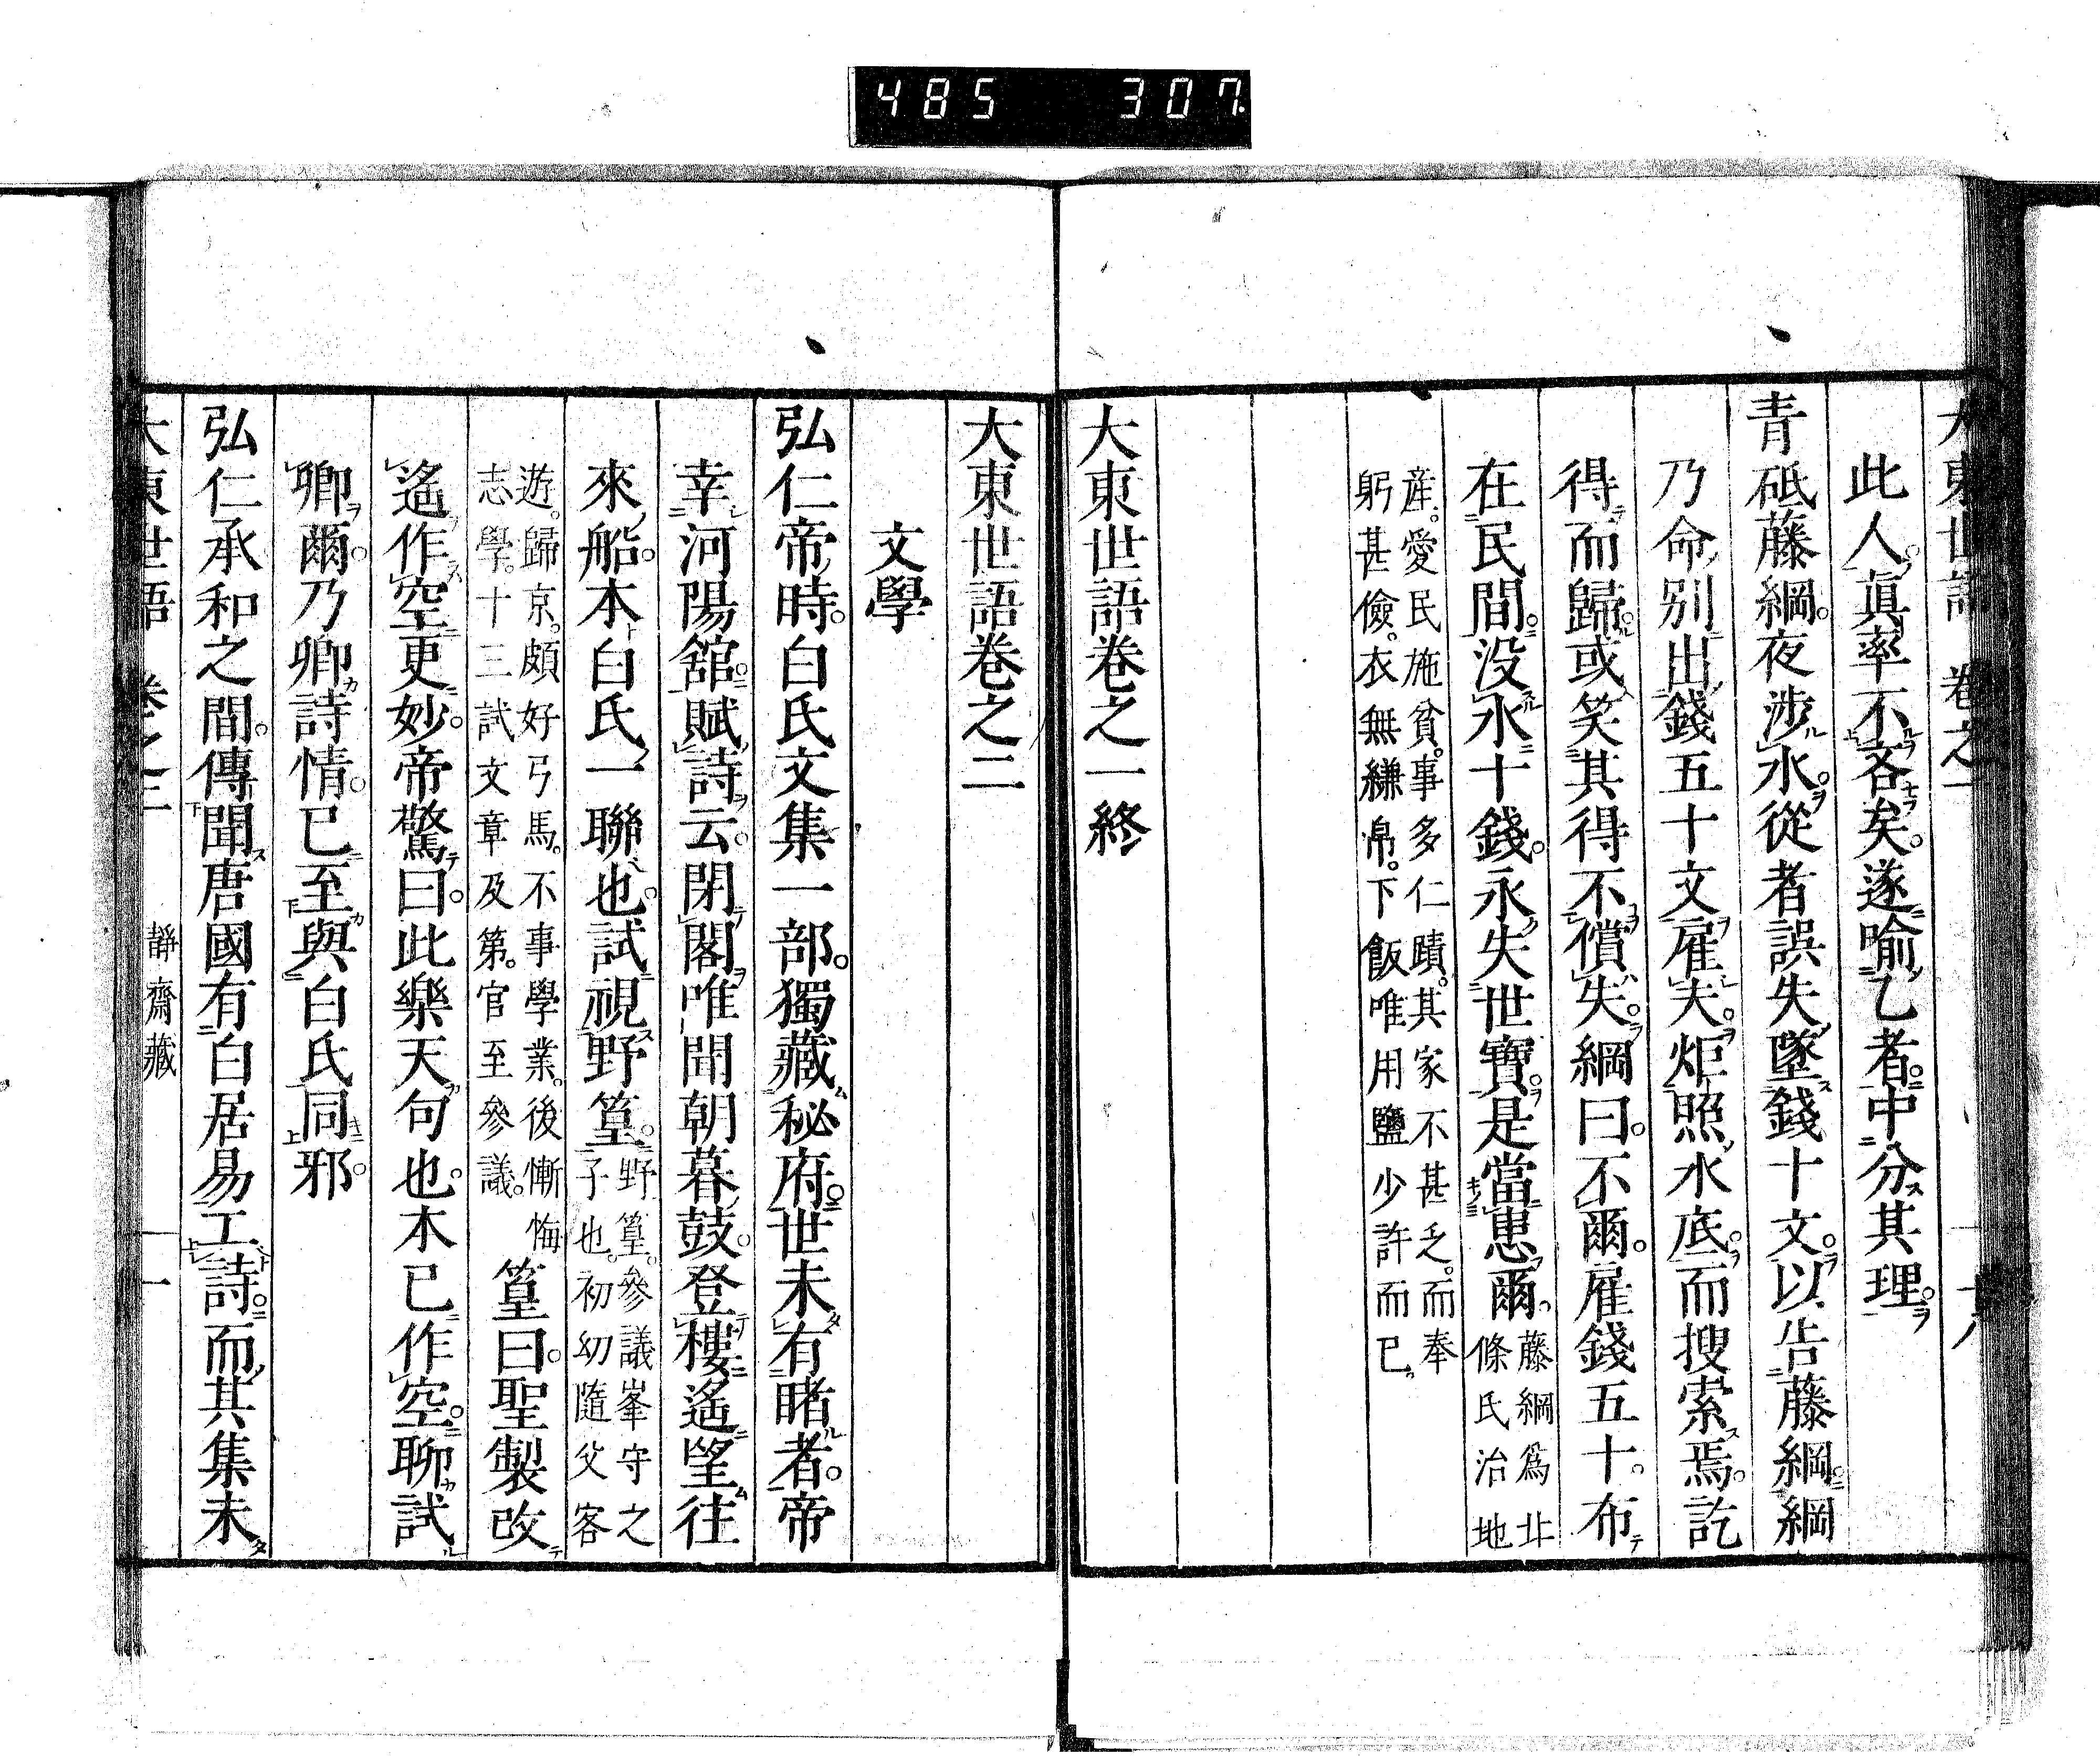 485 307
大東世語 卷之一 十八
此人眞率不吝矣。遂喻乙者。中分其理。
青砥藤綱。夜涉水。從者誤失墜錢十文。以告藤綱。綱
乃命別出錢五十文。雇夫。炬照水底。而搜索焉。訖
得而歸。或笑其得不償失。綱曰。不爾。雇錢五十。布
在民間。没水十錢。永失世寶。是當患爾。藤綱爲北
條氏治地
產。愛民施貧。事多仁蹟。其家不甚乏。而奉
躬甚儉。衣無縑帛。下飯唯用鹽少許而已。
大東世語卷之一終
大東世語卷之二
文學
弘仁帝時。白氏文集一部。獨藏秘府。世未有睹者。帝
幸河陽舘。賦詩云。閉閣唯聞朝暮鼓。登樓遙望往
來船。本白氏一聯也。試視野篁。野篁。參議峯守之
子也。初幼隨父客
遊。歸京。頗好弓馬。不事學業。後慚悔
志學。十三試文章及第。官至參議。篁曰。聖製改
遙作空更妙。帝驚曰。此樂天句也。本已作空。聊試
卿爾。乃卿詩情。已至與白氏同邪。
弘仁承和之間。傳聞唐國有白居易工詩。而其集未
大東世語 卷之二 靜齋藏 一